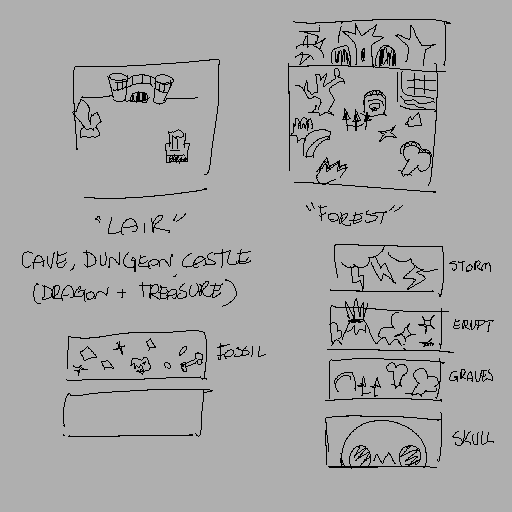 "LAIR"
CAVE, DUNGEON, CASTLE
(DRAGON + TREASURE)
FOSSIL
"FOREST"
STORM
ERUPT
GRAVES
SKULL